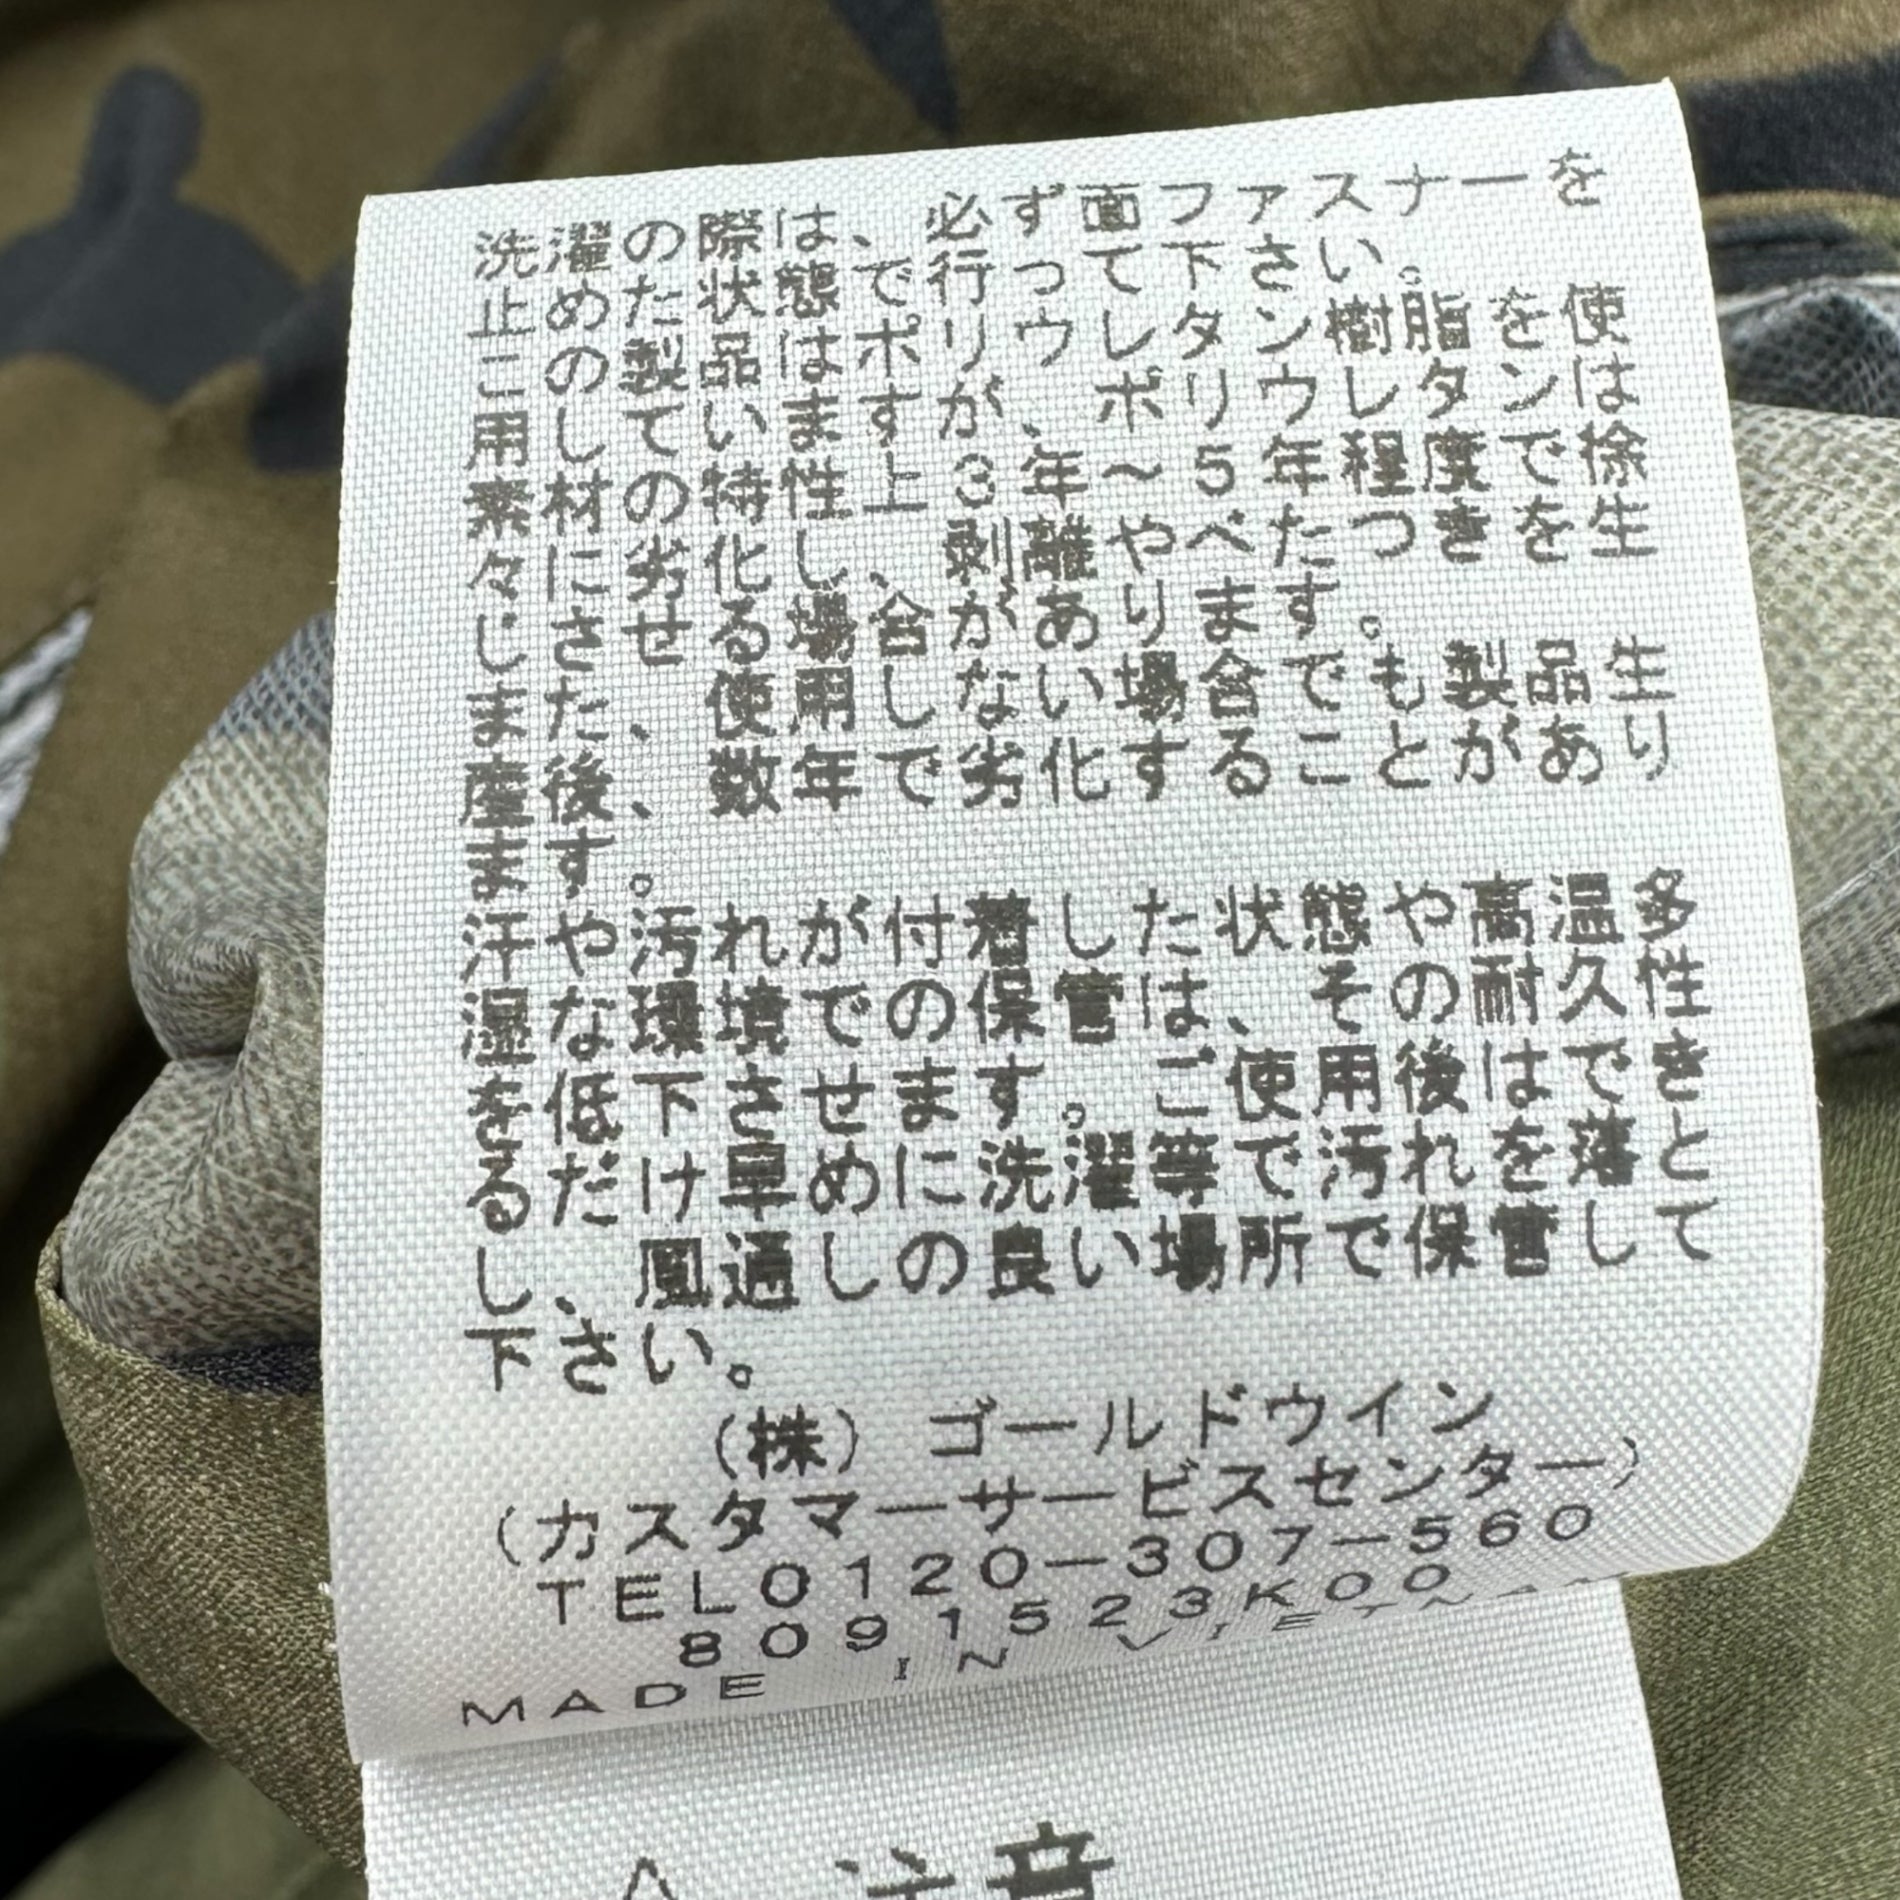 洗濯の際は、必ず面ファスナーを
止めた状態で行って下さい。
この製品はポリウレタン樹脂を使
用していますが、ポリウレタンは
素材の特性上、3年~5年程度で徐
々に劣化し、剥離やべたつきを生
じさせる場合があります。
また、使用しない場合でも製品生
産後、数年で劣化することがあり
ます。
汗や汚れが付着した状態や高温多
湿な環境での保管は、その耐久性
を低下させます。ご使用後はでき
るだけ早めに洗濯等で汚れを落と
し、風通しの良い場所で保管して
下さい。
(株)ゴールドウイン
(カスタマーサービスセンター)
TEL0120-307-560
8091523K00
MADE IN VIETNAM
注意